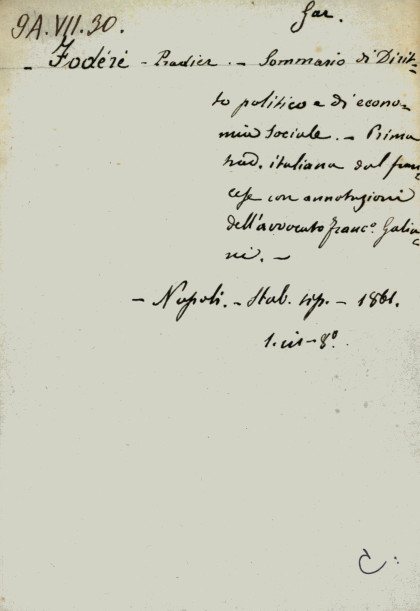 Gar.
9A.VII.30.
- Fodéré - Pradier. - Sommario di Dirit-
to politico e di econo-
mia sociale. - Prima
trad. italiana dal fran
cese con annotazioni
dell'avvocato Franco. Galia
ni. -
- Napoli. - Stab. tip. - 1861.
1. in - 8º.
C.